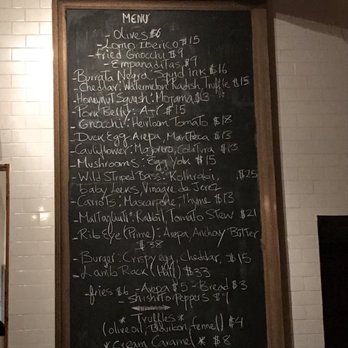 MENU
- olives $6
- Lomo Iberico $15
- fried Gnocchi $9
- Empanaditas $9
Burrata Negra: Squid ink $16
- Cheddar: Watermelon Radish, truffle $15
- Honeynut Squash: Mojama $13
- Pork Belly: $15
- Gnocchi: Heirloom Tomato $18
- Duck Egg: Arepa, Manteca $13
- Cauliflower: Mahorero, $13
- Mushrooms: Egg Yolk $15
- Wild Striped Bass: Kohlrabi, $25
Baby Leeks, Vinagre de Jerez
- Carrots: Mascarpone, Thyme $13
- Maltagliati: Rabbit, Tomato Stew $21
- Ribeye (Prime): Arepa, Anchovy Butter
$38
- Burger: Crispy egg, cheddar, $15
- Lamb Rack (Half) $33
- fries $6 - Arepa $5 - Bread $3
- Shishito Peppers $7
* Truffles *
(olive oil, Bourbon, fennel) $4
* Cream Caramel * $8